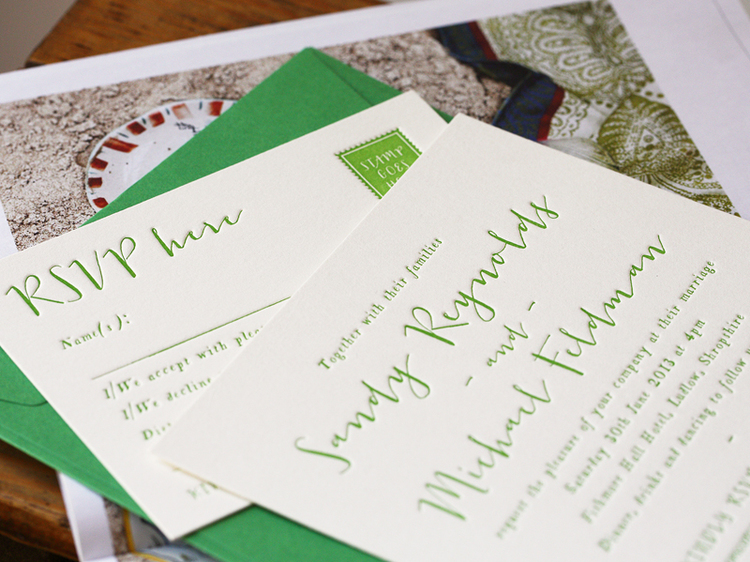 RSVP here
STAMP
GOES
Name(s):
I/We accept with
I/We decline
Together with their families
Sandy Reynolds
- and -
Michael Feldman
request the pleasure of your company at their marriage
Saturday 30th June 2013 at 4pm
Fishmore Hall Hotel, Ludlow, Shropshire
Dinner, drinks and dancing to follow